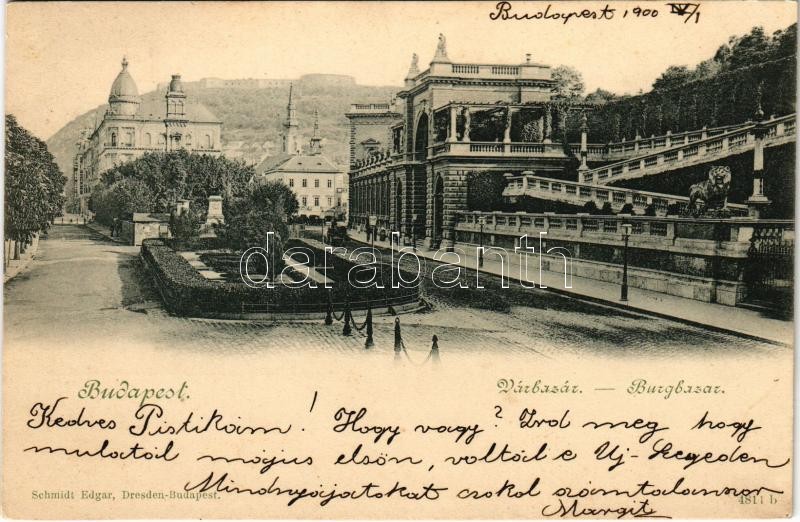 Budapest 1900 IV/1
darabanth
Budapest. Várbazár. — Burgbazar.
Kedves Pistikám! Hogy vagy? Írd meg hogy
mulatál május elsőn, voltál e Uj-Szegeden
Mindnyájatokat csókol számtalanszor
Schmidt Edgar, Dresden-Budapest. Margit 4811 b